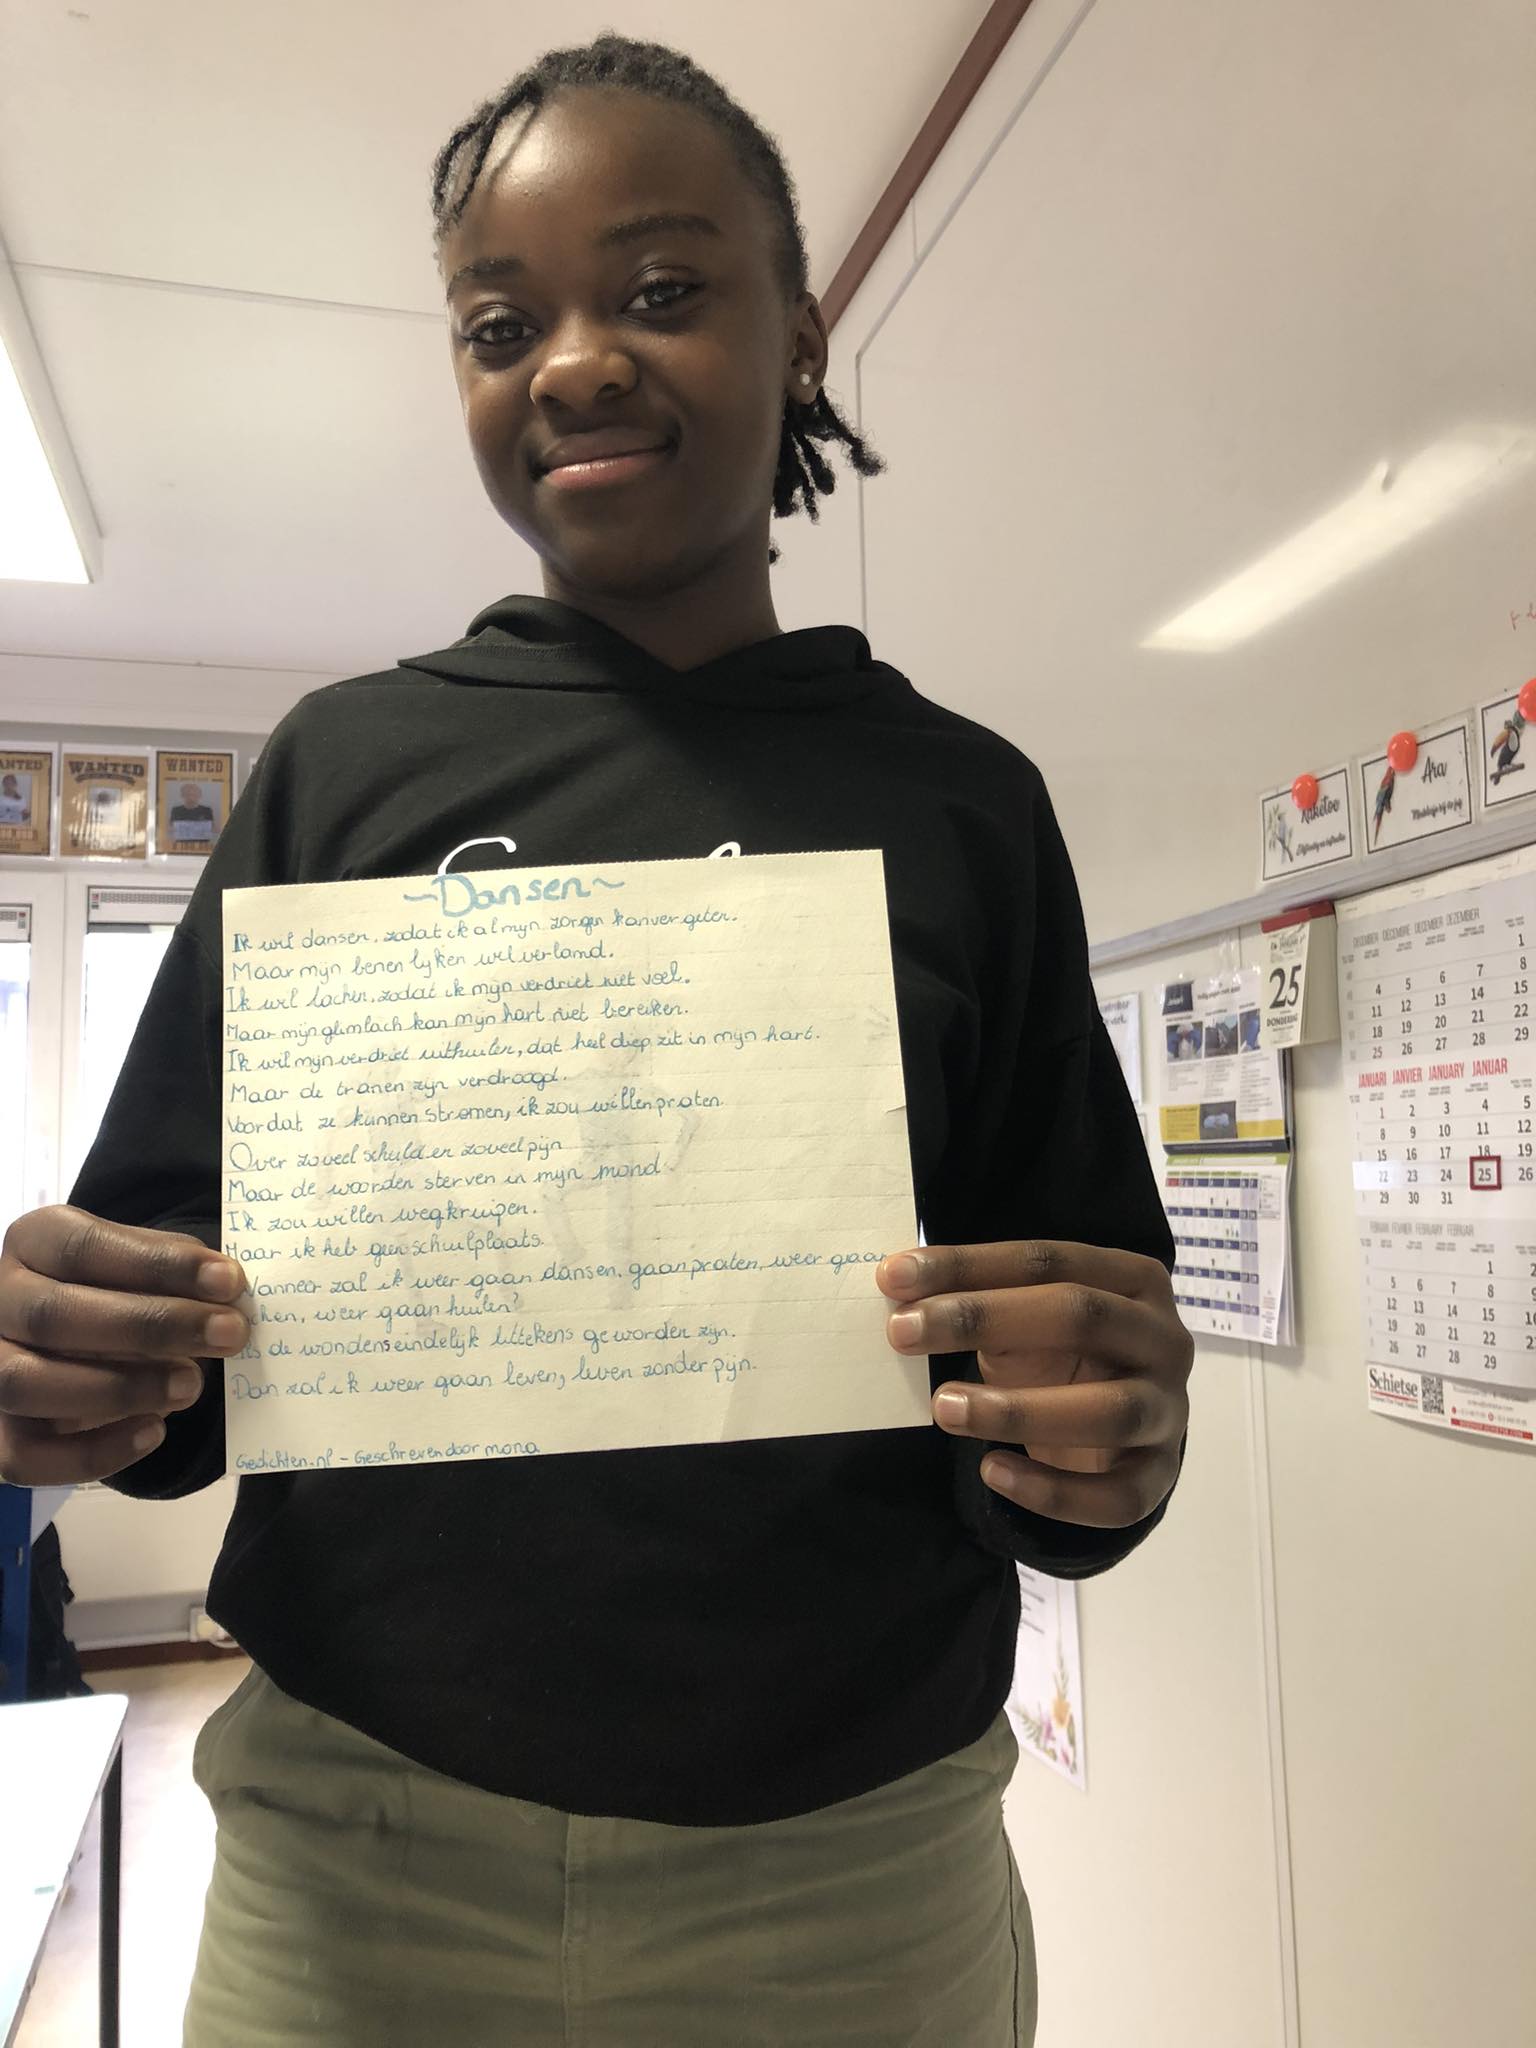 WANTED
WANTED
WANTED
~Dansen~
Ik wil dansen, zodat ik al mijn zorgen kan vergeten.
Maar mijn benen lijken wel verlamd.
Ik wil lachen, zodat ik mijn verdriet niet voel.
Maar mijn glimlach kan mijn hart niet bereiken.
Ik wil mijn verdriet uithuilen, dat heel diep zit in mijn hart.
Maar de tranen zijn verdroogd.
Voordat ze kunnen stromen, ik zou willen praten.
Over zoveel schuld en zoveel pijn
Maar de woorden sterven in mijn mond.
Ik zou willen wegkruipen.
Maar ik heb geen schuilplaats.
Wanneer zal ik weer gaan dansen, gaan praten, weer gaan
chen, weer gaan huilen?
ls de wonden eindelijk littekens geworden zijn.
Dan zal ik weer gaan leven, leven zonder pijn.
Gedichten.nl - Geschreven door mona
Kaketoe
Ara
25
DONDERDAG
DECEMBER DÉCEMBRE DECEMBER DEZEMBER
1
4 5 6 7 8
11 12 13 14 15
18 19 20 21 22
25 26 27 28 29
JANUARI JANVIER JANUARY JANUAR
1 2 3 4 5
8 9 10 11 12
15 16 17 18 19
22 23 24 25 26
29 30 31
FEBRUARI FÉVRIER FEBRUARY FEBRUAR
1 2
5 6 7 8 9
12 13 14 15
19 20 21 22 23
26 27 28 29
Schietse